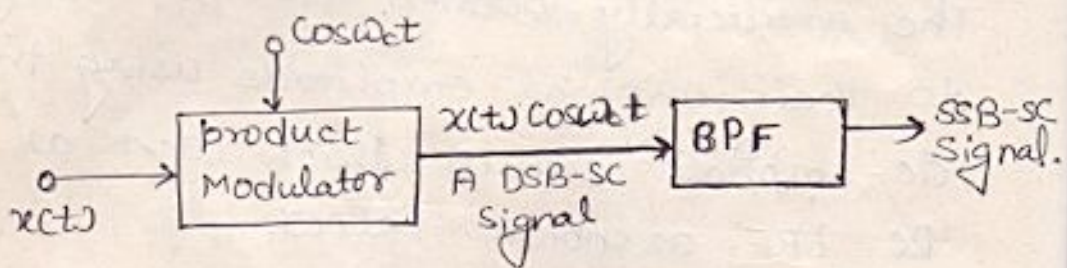 Cosωct
x(t)
product
Modulator
x(t) Cosωct
A DSB-SC
Signal
BPF
SSB-SC
Signal.